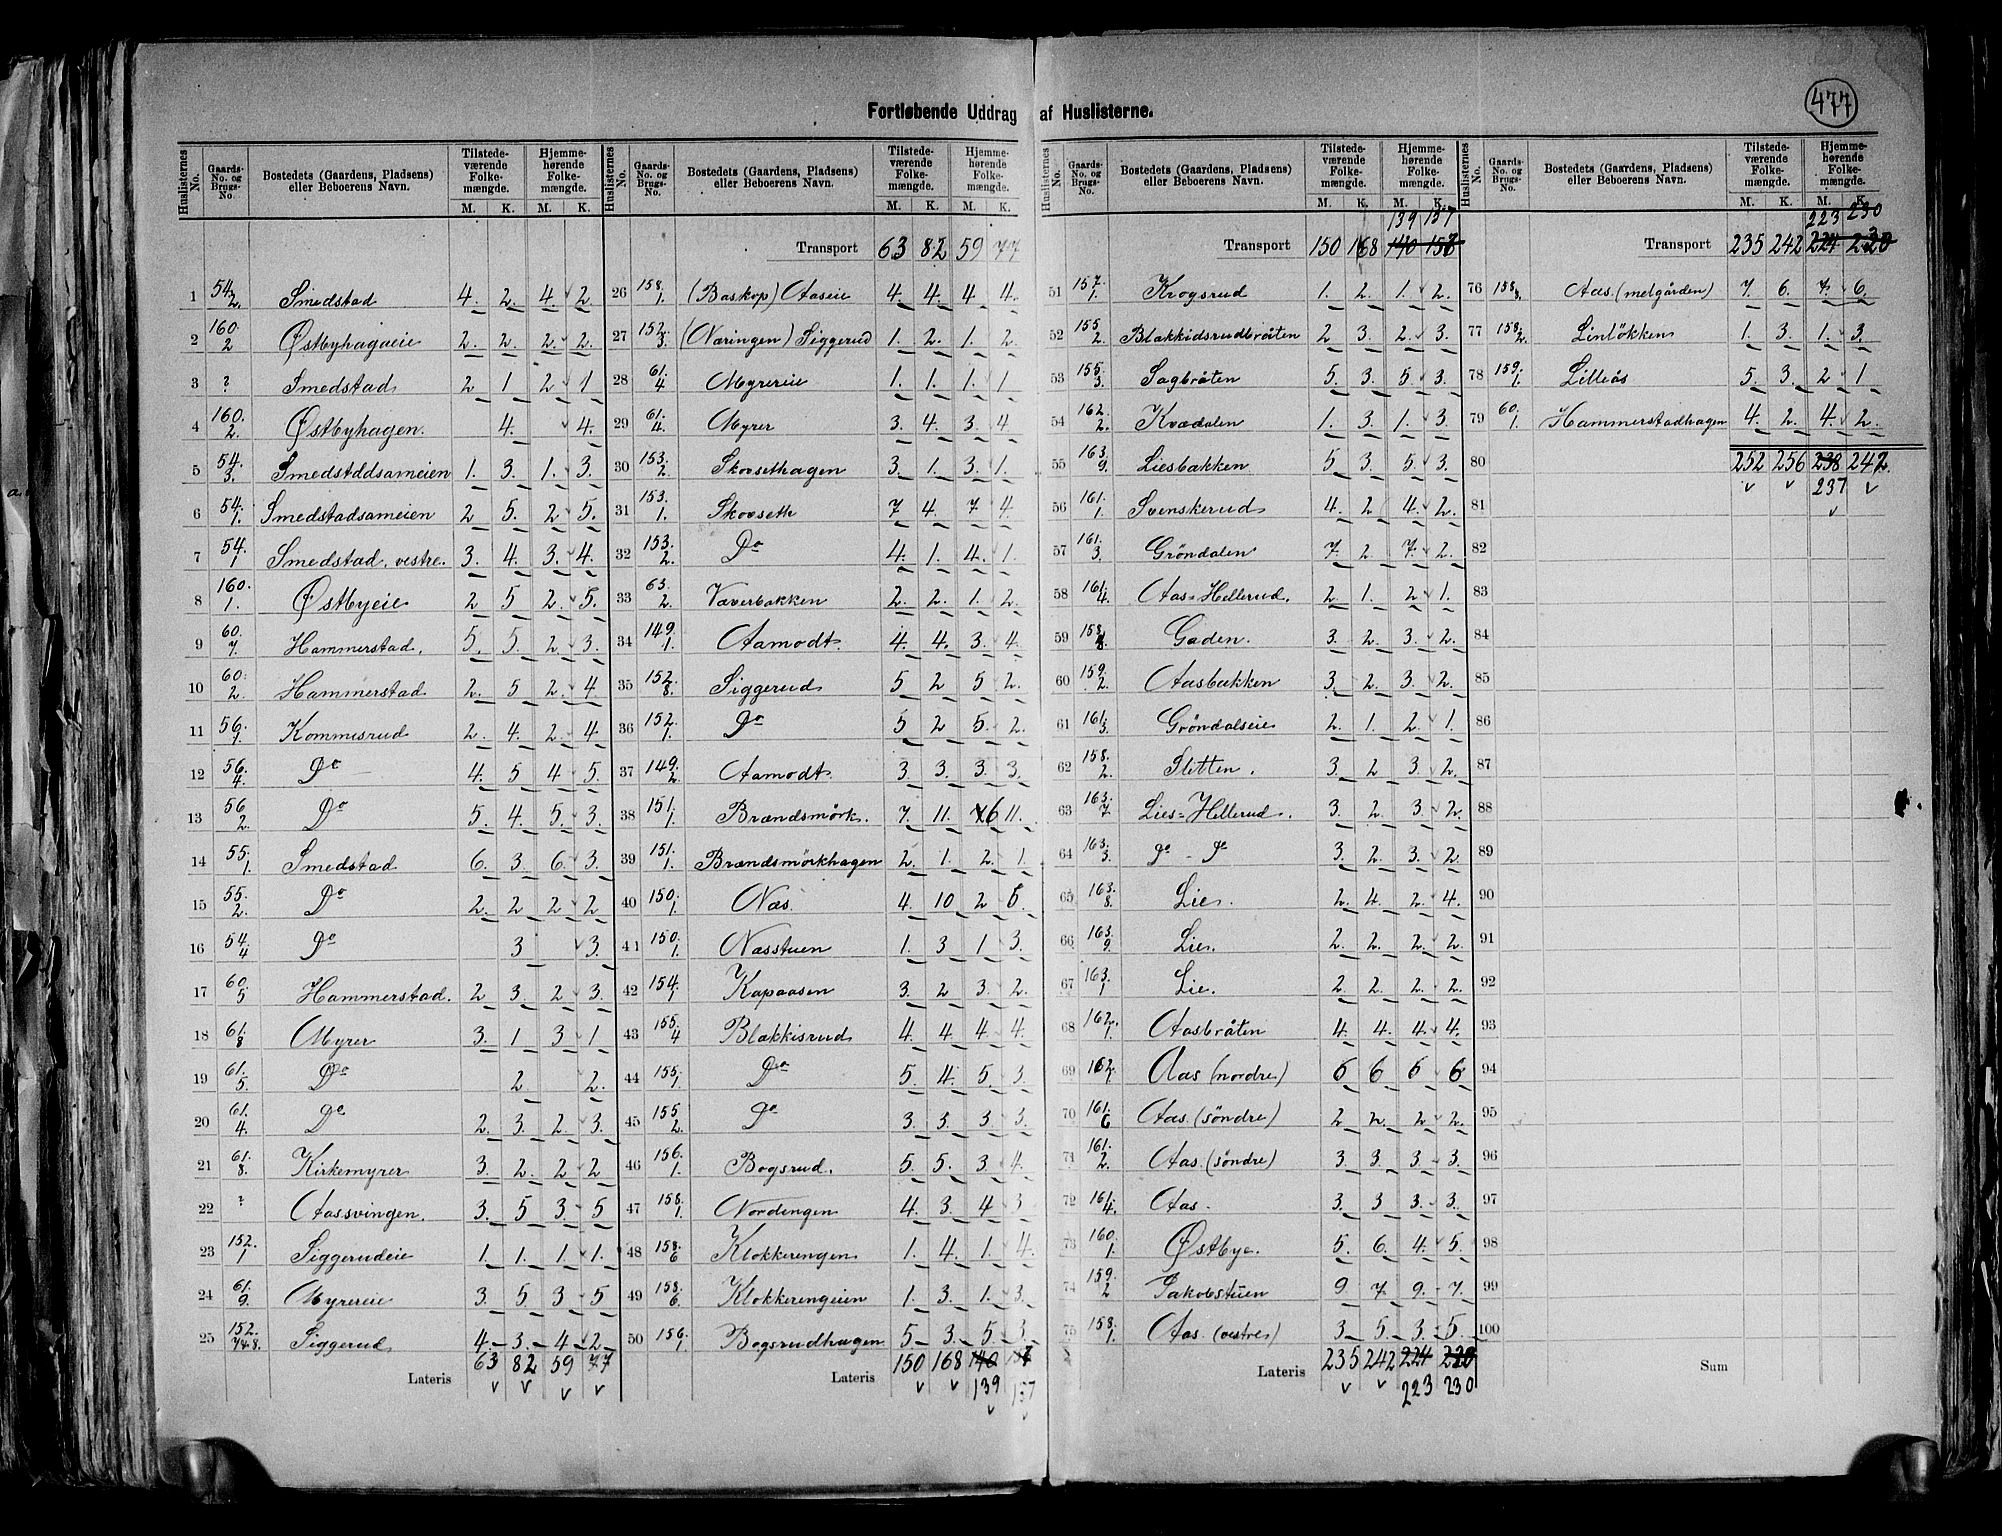 477
Fortløbende Uddrag af Huslisterne.
Huslisternes No. | Gaards-No. og Brugs-No. | Bostedets (Gaardens, Pladsens) eller Beboerens Navn. | Tilstedeværende Folkemængde. M. K. | Hjemmehørende Folkemængde. M. K.
1 54/2. Smedstad 4. 2. 4. 2.
2 160./2 Østbyhagaeie 2. 2. 2. 2.
3 ? Smedstad 2 1 2 1
4 160./2. Østbyhagen. 4. 4.
5 54./3. Smedstddsameien 1. 3. 1. 3.
6 54./1. Smedstadsameien 2 5. 2 5.
7 54./1 Smedstad, vestre. 3. 4. 3. 4.
8 160./1. Østbyeie 2 5 2. 5.
9 60./7. Hammerstad. 5. 5. 2. 3.
10 60./2. Hammerstad 2. 5 2. 4
11 56./1. Kommisrud 2. 4. 2. 4
12 56./4. Do 4. 5 4 5.
13 56/2. Do 5. 4. 5. 3.
14 55./1. Smedstad 6. 3. 6. 3.
15 55./2. Do 2. 2 2 2
16 54./4 Do 3 3.
17 60./5 Hammerstad. 2 3. 2 3.
18 61./8 Myrer 3. 1 3 1
19 61./5. Do 2. 2.
20 61./4. Do 2. 3. 2. 3.
21 61./8. Kirkemyrer 3. 2. 2 2
22 ? Aassvingen. 3. 5 3. 5
23 152./1 Siggerudeie 1. 1. 1 1.
24 61./9. Myrereie 3. 5. 3 5
25 152./7&8. Siggerud 4. 3. 4 2.
Lateris 63 82 59 77
Transport 63 82 59 77
26 158./1. (Baskop) Aaseie 4. 4. 4 4.
27 152./3. (Næringen) Siggerud 1. 2. 1. 2.
28 61./4 Myrereie 1. 1. 1. 1
29 61./4. Myrer 3. 4. 3. 4.
30 153./2. Skovsethagen 3. 1. 3. 1.
31 153./1. Skovseth 7 4. 7 4.
32 153./2. Do 4. 1. 4. 1.
33 63./2. Væverbakken 2. 2. 1. 2.
34 149./1. Aamodt. 4. 4. 3. 4.
35 152./8. Siggerud 5 2 5 2.
36 152./1. Do 5 2 5. 2.
37 149./2. Aamodt. 3. 3. 3. 3.
38 151./1. Brændsmörk. 7. 11. 6 11.
39 151./1. Brændsmörkhagen 2. 1. 2. 1.
40 150./1. Næs. 4. 10 2
41 150./1. Næsstuen 1. 3 1 3.
42 154./1 Kapaasen 3. 2 3. 2.
43 155./4 Blakkisrud 4. 4. 4 4.
44 155./1 Do 5. 4. 5. 3.
45 155/2. Do 3. 3. 3. 3.
46 156./1. Bogsrud. 5. 5. 3 4.
47 158./1. Nordengen 4. 3. 4 3
48 158./6 Klokkerengen 1. 4. 1. 4.
49 158./6. Klokkerengeien 1. 3. 1. 3.
50 156./1. Bogsrudhagen 5. 3. 5. 3.
Lateris 150 168 140
139 137
139 157
Transport 150 168 140 158
51 157./1. Krogsrud 1. 2. 1. 2.
52 155/2. Blakkidsrudbråten 2 3. 2. 3.
53 155./3. Sagbråten 5. 3. 5 3.
54 162./2. Kvædalen 1. 3. 1. 3.
55 163./9. Liesbakken 5. 3. 5 3.
56 161./1. Svenskerud 4. 2 4. 2.
57 161./3. Gröndalen 7. 2. 7. 2.
58 161./4. Aas=Hellerud. 2. 1. 2 1.
59 158./8. Gaden. 3. 2. 3. 2.
60 159./2. Aasbakken 3. 2. 3. 2.
61 161./3. Gröndalseie 2. 1. 2. 1.
62 158./2. Sletten. 3. 2 3. 2.
63 163./7 Lies=Hellerud. 3. 2. 3. 2.
64 163./3. Do - Do 3. 2. 3. 2.
65 163./8. Lie. 2. 4. 2. 4.
66 163./9. Lie. 2. 2. 2. 2
67 163./1 Lie. 2. 2. 2. 2.
68 162./1. Aasbråten 4. 4. 4. 4.
69 162./1. Aas (nordre) 6 6 6 6
70 161./6 Aas. (söndre) 2 2. 2. 2.
71 161./2. Aas. (söndre) 3. 3. 3. 3.
72 161./4. Aas. 3. 3 3. 3.
73 160./1. Østbye. 5. 6. 4. 5.
74 159./2 Jakobstuen 9 7. 9. 7.
75 158./1. Aas. (vestre) 3 5. 3. 5.
Lateris 235 242 224 220
223 230
223 230
Transport 235 242 224 220
76 158./3. Aas. (melgården) 7. 6. 7. 6.
77 158./2. Lintökken 1. 3. 1. 3.
78 159./1. Lilleås 5. 3. 2 1
79 60./1. Hammerstadhagen 4. 2. 4. 2.
80 252 256 238 242.
237
81
82
83
84
85
86
87
88
89
90
91
92
93
94
95
96
97
98
99
100
Sum